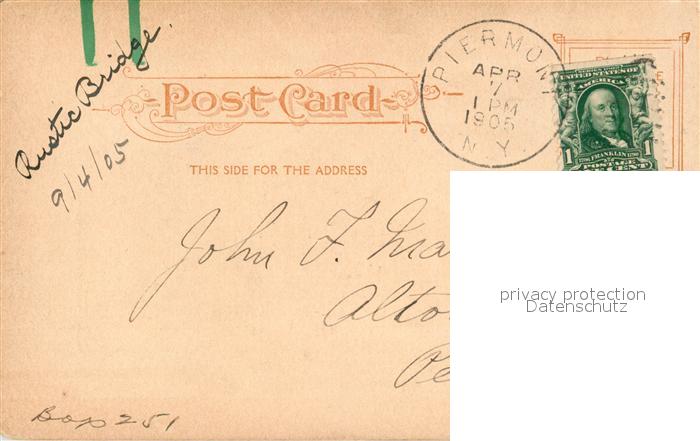 Rustic Bridge.
9/4/05
Post Card
THIS SIDE FOR THE ADDRESS
PIERMON
APR
7
1 PM
1905
N.Y.
UNITED STATES OF
AMERICA
1 FRANKLIN
POSTAGE
privacy protection
Datenschutz
John F. Ma
Alto
Pe
Box 251